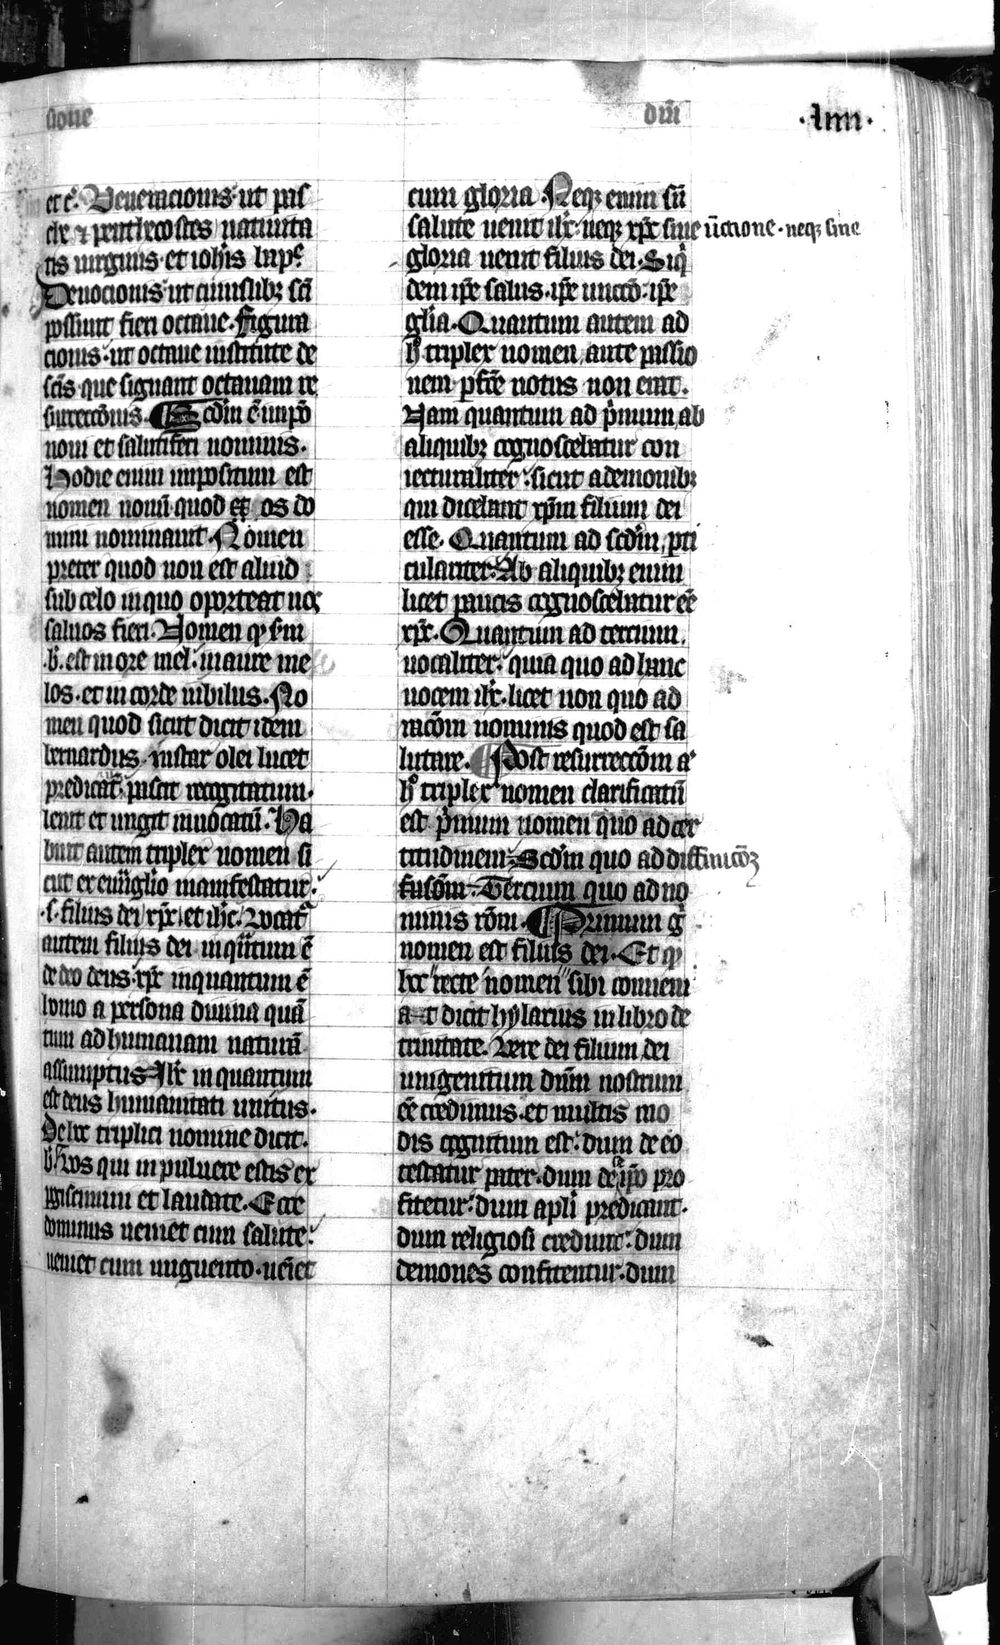 sione
dñi
·lxiiii·
et c̃. Veneracionis· ut pas
che ⁊ penthecostes natiuita
tis uirginis· et ioh̃is bap̃e
Deuocionis· ut cuiuslibꝫ sc̃i
possunt fieri octaue. Figura
cionis· ut octaue institute de
sc̃is que signant octauam re
surrecc̃onis. Scd̃m ẽ inpõ
noui et salutiferi nominis.
Hodie enim impositum est
nomen nouũ quod os do
mini nominauit. Nomen
preter quod non est aliud
sub celo in quo oporteat nos
saluos fieri. Nomen qͥ s̃m
.b̃. est in ore mel· in aure me
los· et in corde iubilus. No
men quod sicut dicit idem
bernardus· instar olei lucet
predicat̃· pascit recogitatum·
lenit et ungit inuocatũ. Ha
buit autem triplex nomen si
cut ex euãg̃lio manifestatur·
·s· filius dei xp̃c et ih̃c. Vocat̃
autem filius dei inq̃tum ẽ
de deo deus· xp̃c inquantum ẽ
homo a persona diuina quã
tum ad humanam naturã
assumptus· Ih̃c in quantum
est deus humanitati unitus·
De hoc triplici nomine dicit.
b̃. Vos qui in puluere estis ex
pgiscimini et laudate. Ecce
dominus ueniet cum salute·
ueniet cum unguento· uẽiet
cum gloria. Neqꝫ enim sñ
salute uenit ih̃c· neqꝫ xp̃c sine ũctione· neqꝫ sine
gloria uenit filius dei. Siqͥ
dem ip̃e salus· ip̃e unccõ· ip̃e
gl̃ia. Quantum autem ad
hͦ triplex nomen, ante passio
nem pf̃ce notus non erat.
Nam quantum ad pͥmum ab
aliquibꝫ cognoscebatur con
iecturaliter· sicut a demonibꝫ
qui dicebant xp̃m filium dei
esse. Quantum ad scd̃m, pti
culariter. Ab aliquibꝫ enim
licet paucis cognoscebatur eẽ
xp̃c. Quantum ad tercium.
uocaliter· quia quo ad hanc
uocem ih̃c· licet non quo ad
racõm nominis quod est sa
lutare. Post resurreccõm aͣ
hͦ triplex nomen clarificatũ
est pͥmum nomen quo ad cer
titudinem· Scd̃m quo ad diffinicõꝫ
fusõm· Tercium quo ad no
minis rõm· Primum gͦ
nomen est filius dei. Et qͥ
hoc recte nomen sibi conueni
at dicit hylarius in libro de
trinitate. Vere dei filium dei
unigenitum dñm nostrum
eẽ credimus· et multis mo
dis cognitum est· dum de eo
testatur pater· dum de ip̃o pro
fitetur· dum apl̃i predicant·
dum religiosi credunt· dum
demones confitentur· dum